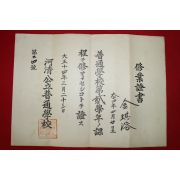 修業證書
金琪洛
普通學校第貳學年ノ課
程ヲ修業セシコトヲ證ス
大正十四年三月二十三日
河淸公立普通學校